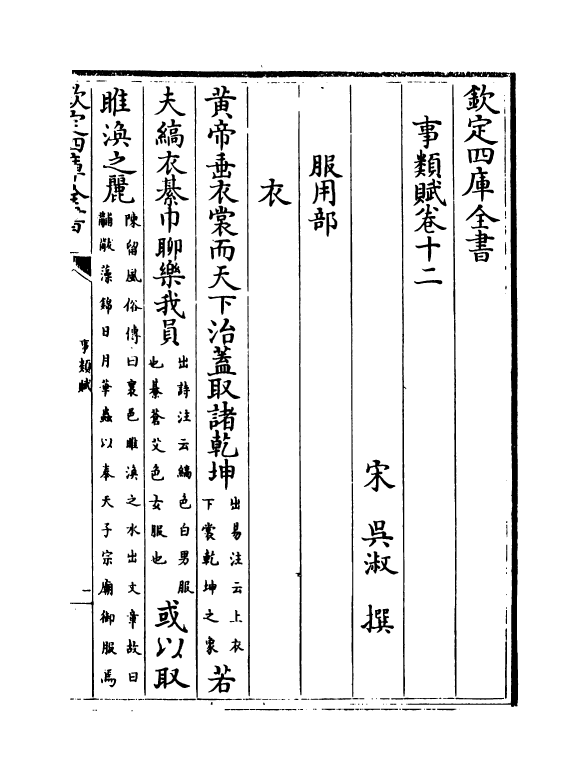 欽定四庫全書
事類賦卷十二
宋　吳淑　撰
服用部
衣
黄帝垂衣裳而天下治蓋取諸乾坤出易注云上衣下裳乾坤之象若
夫縞衣綦巾聊樂我員出詩注云縞色白男服也綦蒼艾色女服也或以取
睢渙之麗陳留風俗傳曰襄邑睢渙之水出文章故曰黼黻藻錦日月華蟲以奉天子宗廟御服焉
欽定四庫全書
事類賦
一